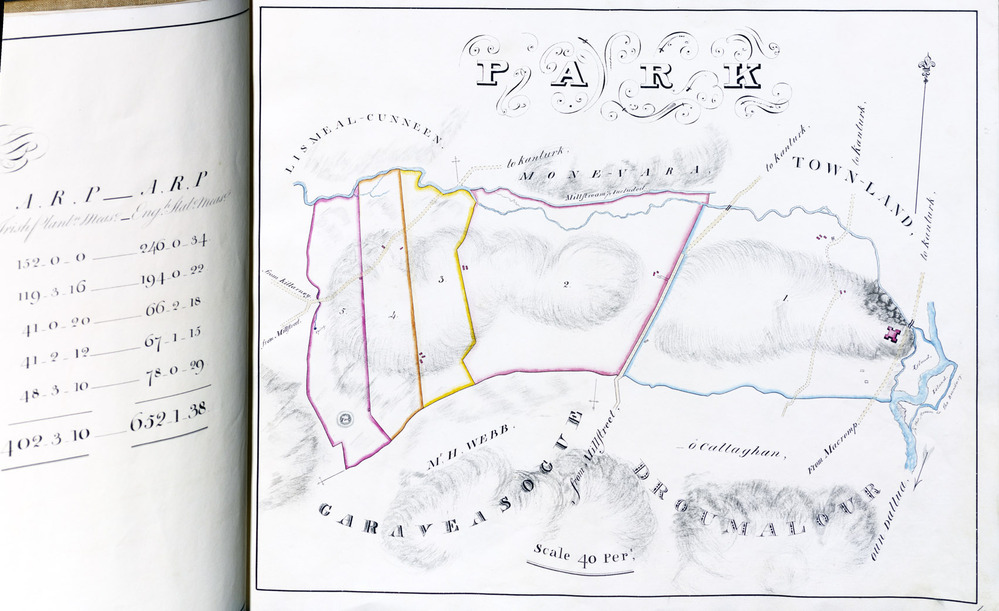 A.R.P — A.R.P
Irish Plant.n Meas.r — Eng.h Stat.e Meas.r
152-0-0 — 246-0-34
119-3-16 — 194-0-22
41-0-20 — 66-2-18
41-2-12 — 67-1-15
48-3-10 — 78-0-29
402-3-10 — 652-1-38
PARK
LISMEAL-CUNNEEN.
to kanturk.
MONE-VARA.
Millstream included
to kanturk.
to kanturk.
TOWN-LAND,
to kanturk.
from killarney
from Millstreet.
5
4
3
2
1
Island
Mr. H. WEBB.
GARAVEASOGUE
from Millstreet
DROUMALOUR
o Callaghan,
From Macromp.
own dallua.
Scale 40 Per.s,